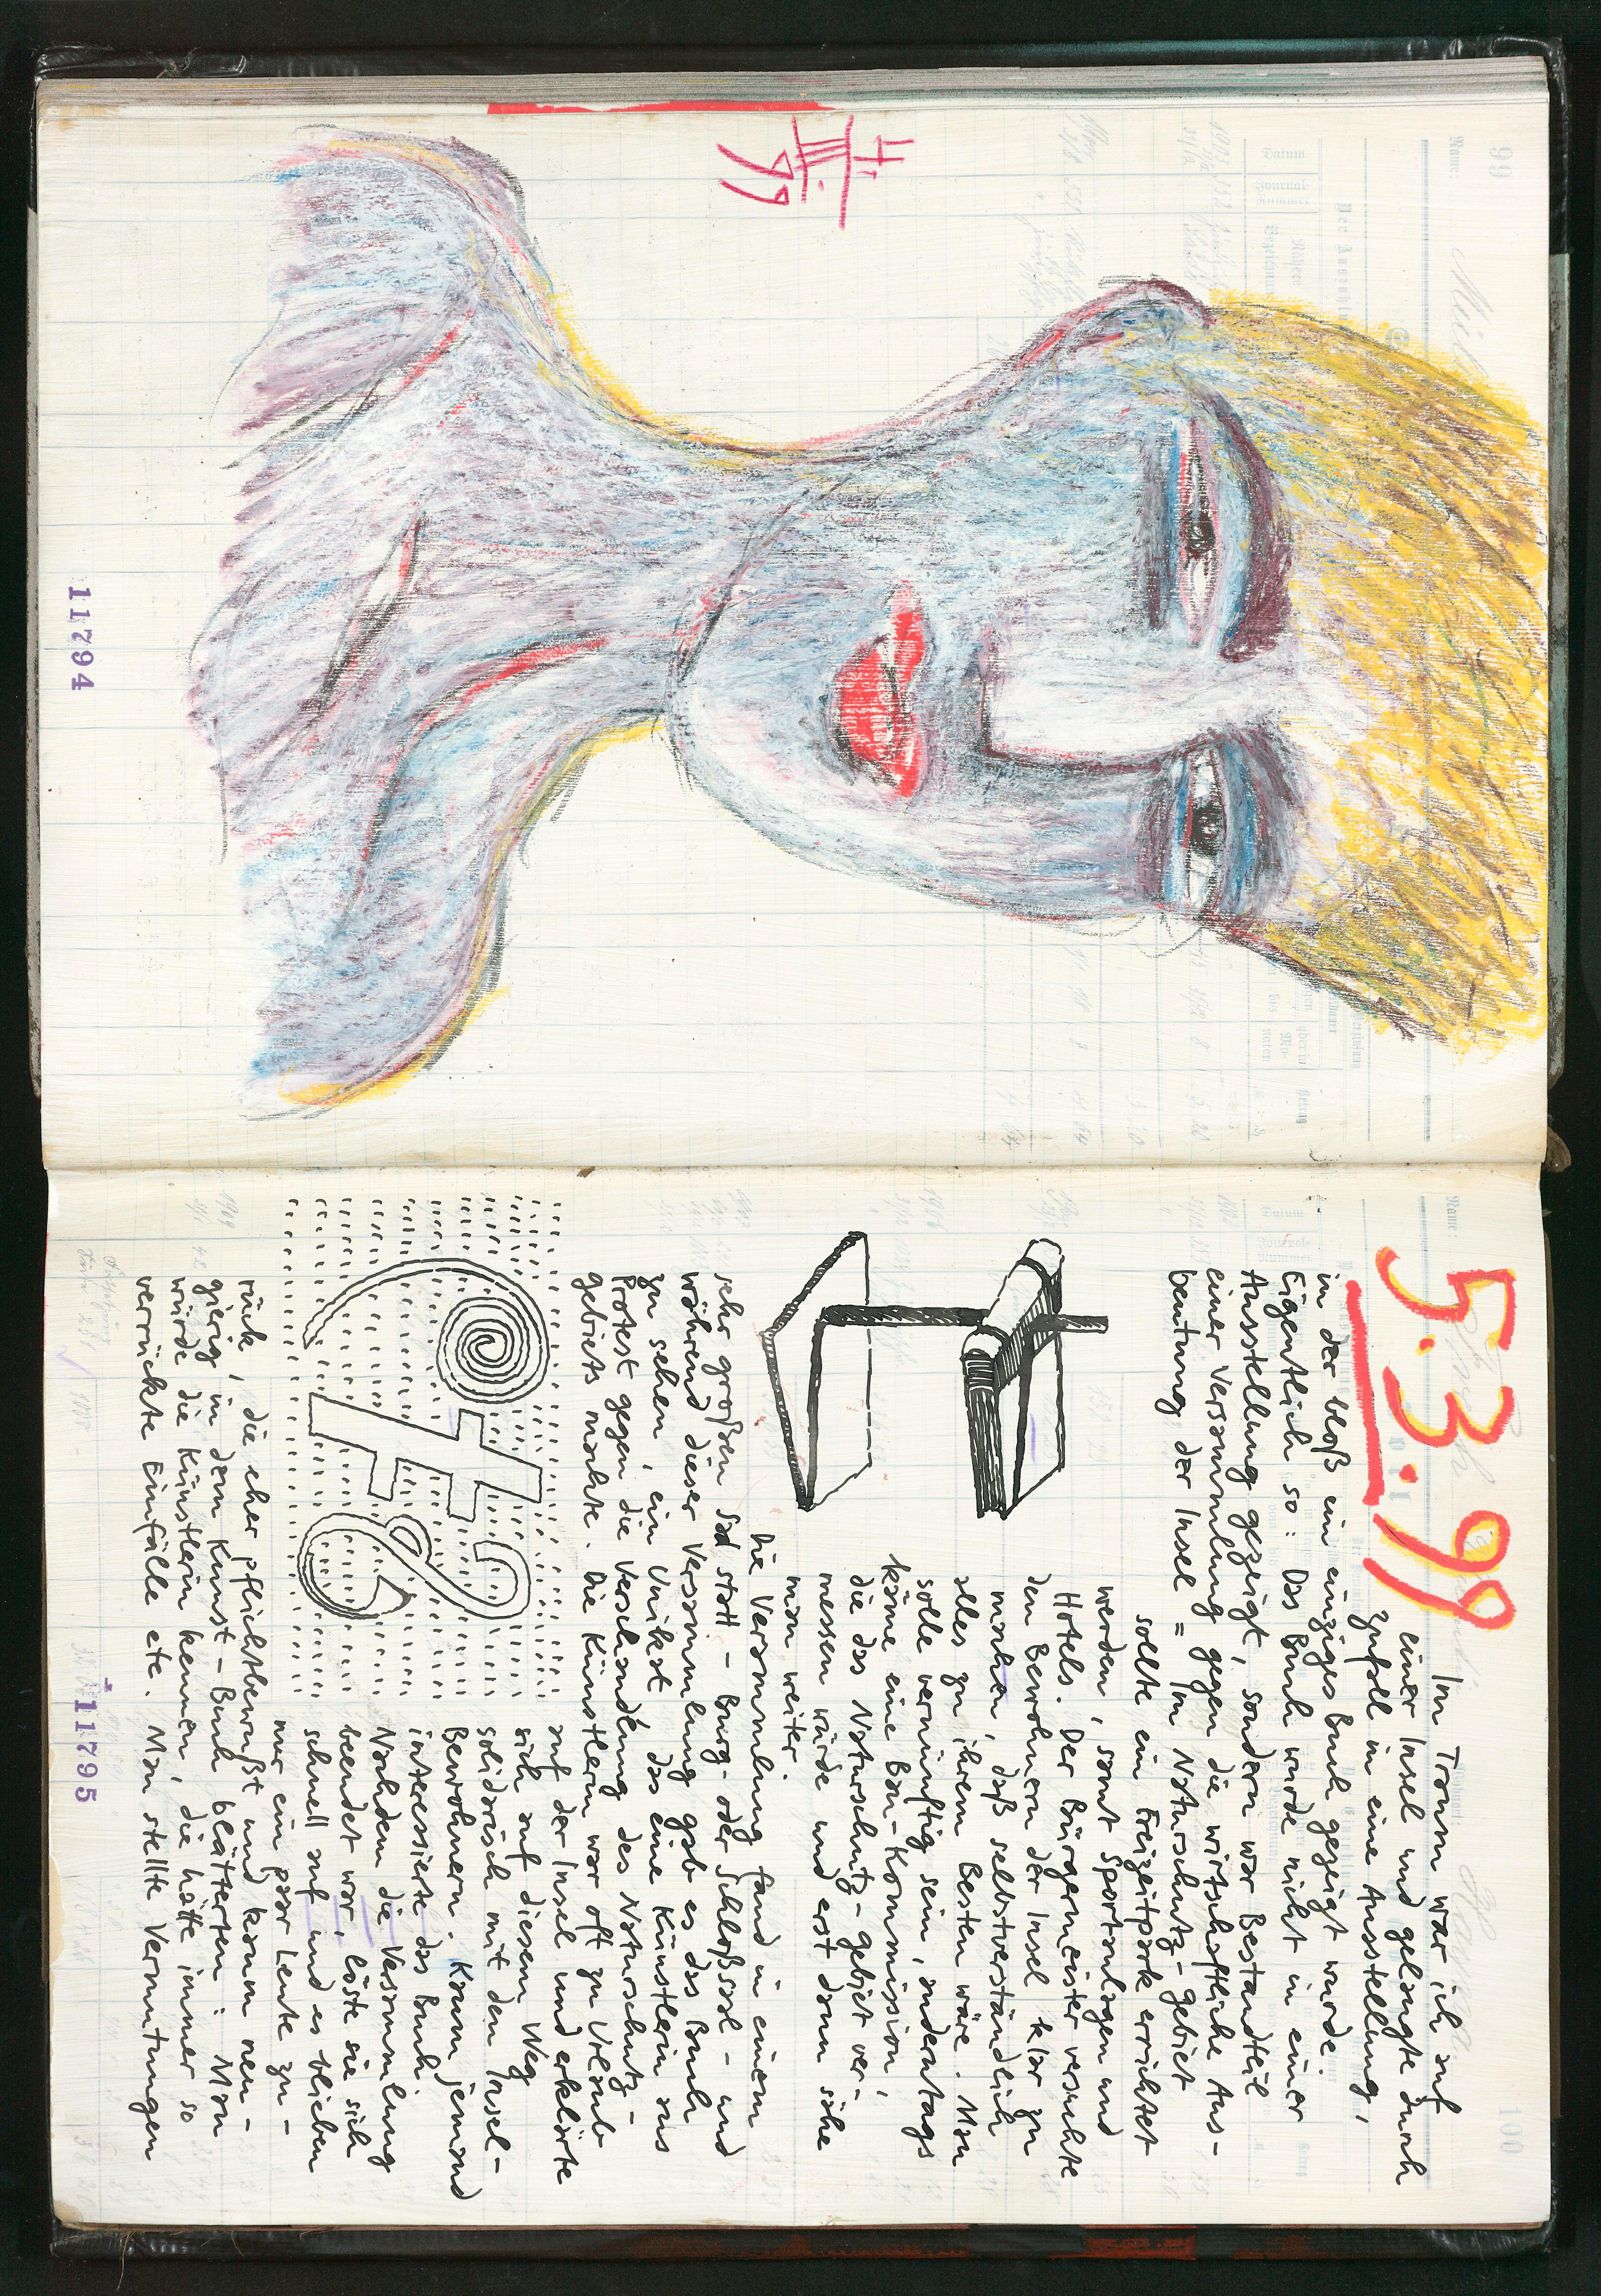 4.
III.
99
11794
5.3.99
Im Traum war ich auf
einer Insel und gelangte durch
Zufall in eine Ausstellung,
in der bloß ein einziges Buch gezeigt wurde.
Eigentlich so: Das Buch wurde nicht in einer
Ausstellung gezeigt, sondern war Bestandteil
einer Versammlung gegen die wirtschaftliche Aus-
beutung der Insel = Im Naturschutz-gebiet
sollte ein Freizeitpark errichtet
werden, samt Sportanlagen und
Hotels. Der Bürgermeister versuchte
den Bewohnern der Insel klar zu
machen, daß selbstverständlich
alles zu ihrem Besten wäre. Man
solle vernünftig sein, andertags
käme eine Bau-Kommission,
die das Naturschutz-gebiet ver-
messen würde und erst dann sähe
man weiter.
Die Versammlung fand in einem
sehr großen Saal statt - Burg- oder Schloßsaal - und
während dieser Versammlung gab es das Buch
zu sehen, ein Unikat, das eine Künstlerin aus
Protest gegen die Verschandlung des Naturschutz-
gebiets machte. Die Künstlerin war oft zu Urlaub
auf der Insel und erklärte
sich auf diesem Weg
solidarisch mit den Insel-
Bewohnern. Kaum jemand
interessierte das Buch.
Nachdem die Versammlung
beendet war, löste sie sich
schnell auf und es blieben
nur ein paar Leute zu-
rück, die eher pflichtbewußt und kaum neu-
gierig in dem Kunst-Buch blätterten: Man
würde die Künstlerin kennen, die hätte immer so
verrückte Einfälle etc. Man stellte Vermutungen
11795
Name:
99
Datum
Journal-
Nummer
Name:
100
Datum